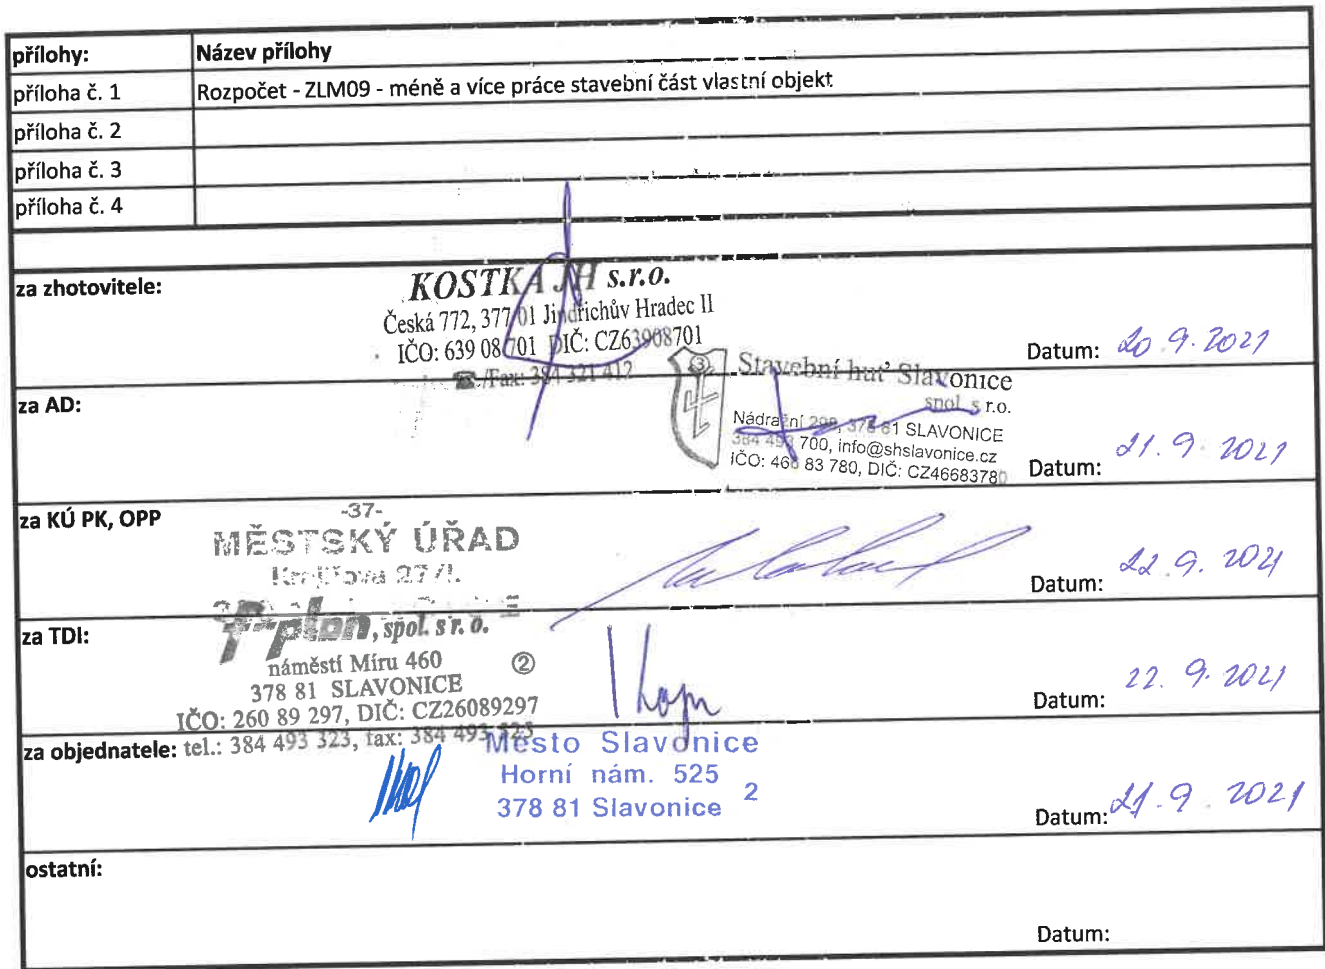 přílohy: Název přílohy
příloha č. 1 Rozpočet - ZLM09 - méně a více práce stavební část vlastní objekt
příloha č. 2
příloha č. 3
příloha č. 4
za zhotovitele:
KOSTKA JH s.r.o.
Česká 772, 377 01 Jindřichův Hradec II
IČO: 639 08 701 DIČ: CZ63908701
☎/Fax: 384 321 412
Datum: 20.9.2021
za AD:
3
Stavební huť Slavonice
spol. s r.o.
Nádražní 298, 378 81 SLAVONICE
384 493 700, info@shslavonice.cz
IČO: 466 83 780, DIČ: CZ46683780
Datum: 21.9.2021
za KÚ PK, OPP
-37-
MĚSTSKÝ ÚŘAD
27/I.
Datum: 22.9.2021
za TDI:
plan, spol. s r. o.
náměstí Míru 460 ②
378 81 SLAVONICE
IČO: 260 89 297, DIČ: CZ26089297
tel.: 384 493 323, fax: 384 493 323
Datum: 22.9.2021
za objednatele:
Město Slavonice
Horní nám. 525
378 81 Slavonice 2
Datum: 21.9.2021
ostatní:
Datum: